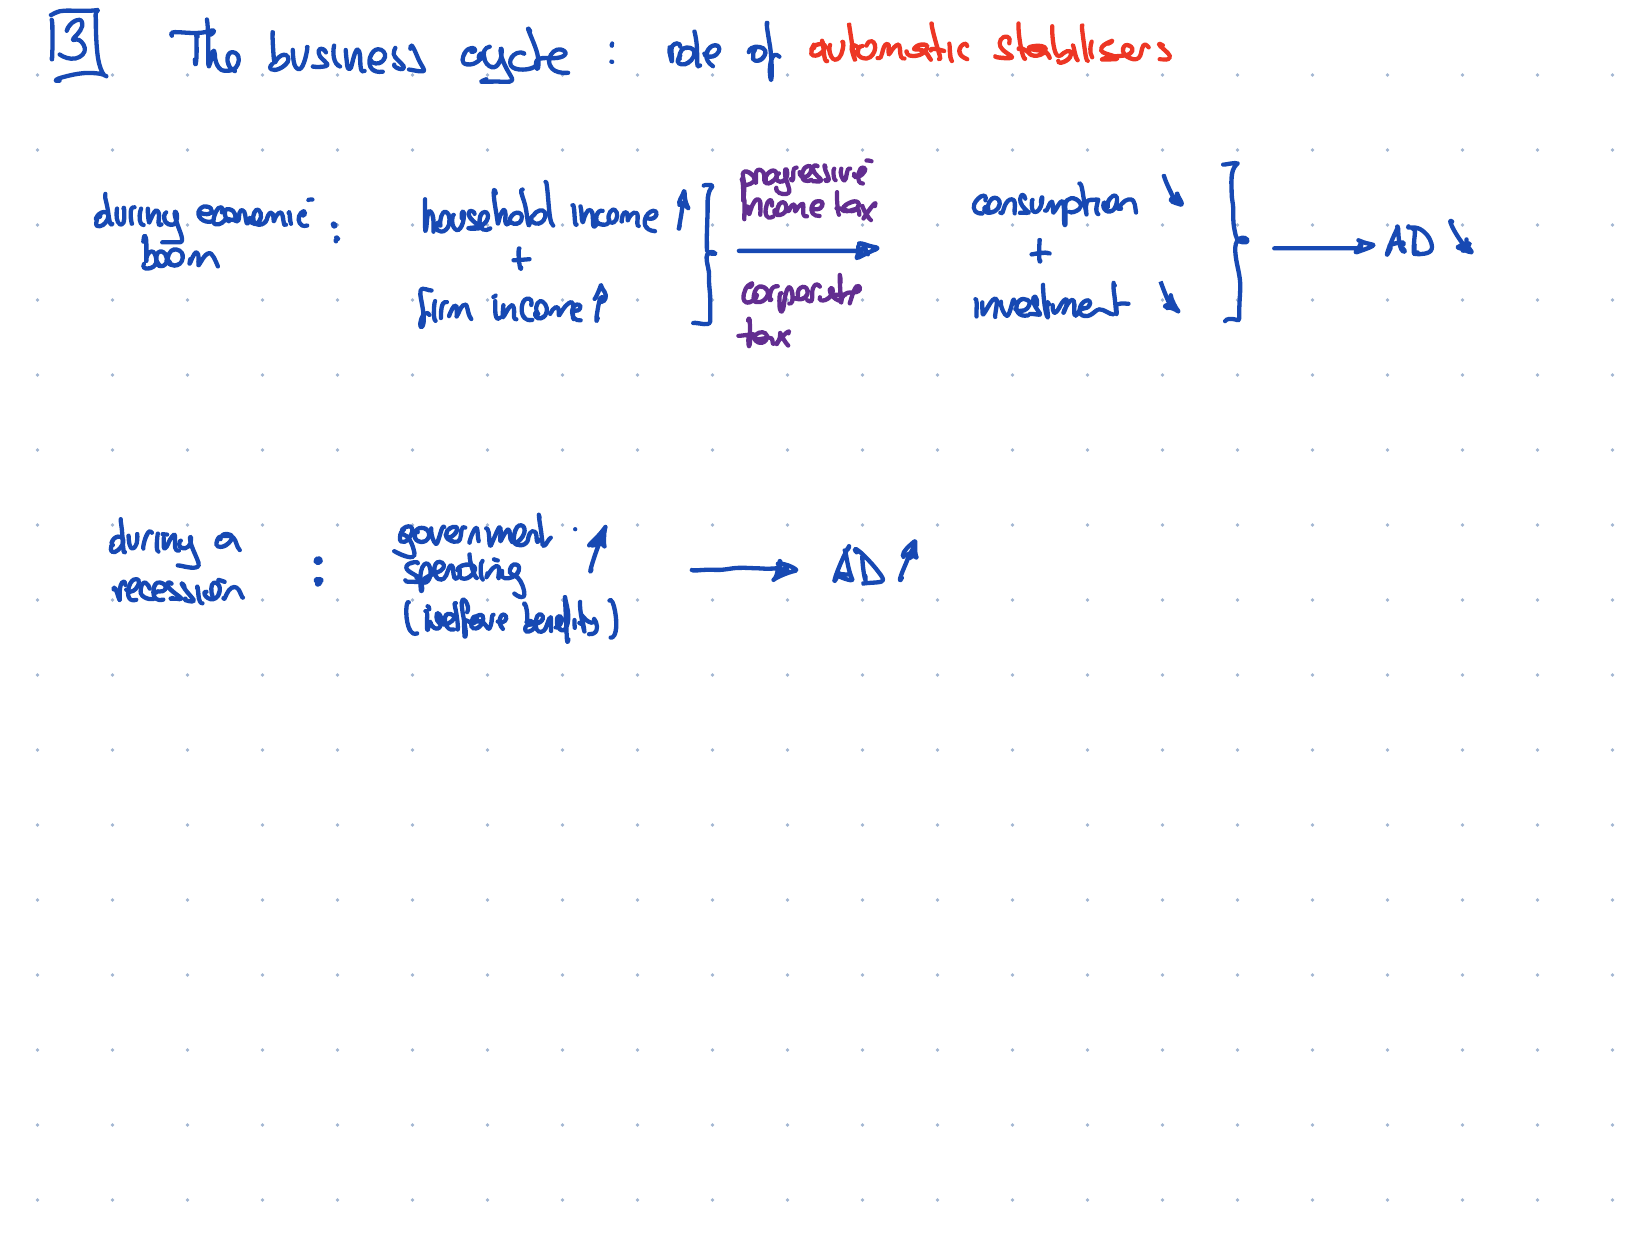 3 The business cycle : role of automatic stabilisers
during economic boom :
household income ↑
+
firm income ↑
progressive
income tax
corporate
tax
consumption ↘
+
investment ↘
→ AD ↘
during a
recession :
government ↗
spending
(welfare benefits)
→ AD ↗